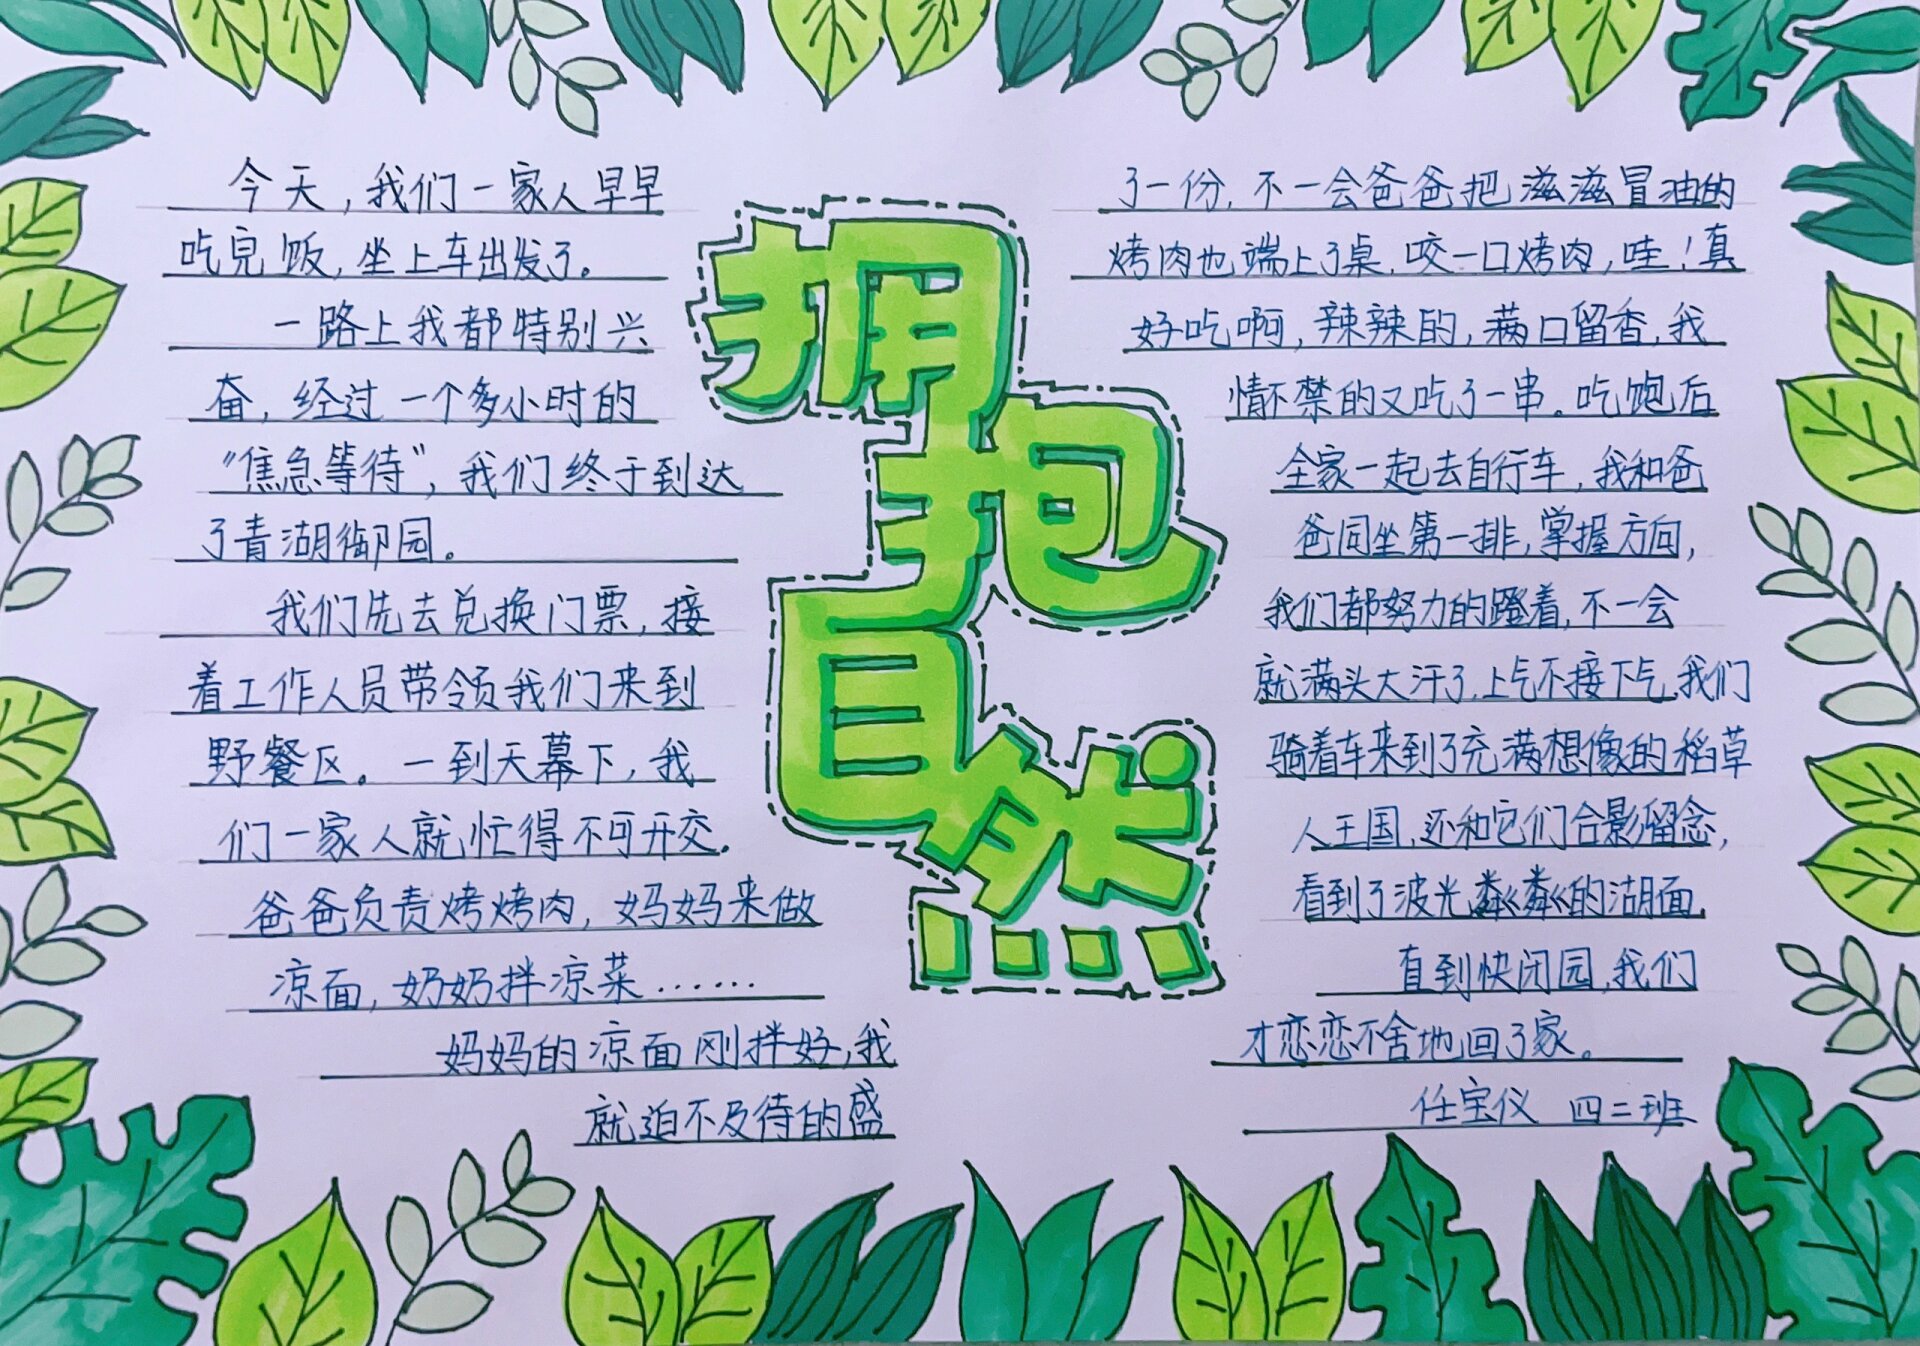 拥抱自然
今天，我们一家人早早
吃完饭，坐上车出发了。
一路上我都特别兴
奋，经过一个多小时的
“焦急等待”，我们终于到达
了青湖御园。
我们先去兑换门票，接
着工作人员带领我们来到
野餐区。一到天幕下，我
们一家人就忙得不可开交。
爸爸负责烤烤肉，妈妈来做
凉面，奶奶拌凉菜……
妈妈的凉面刚拌好，我
就迫不及待的盛
了一份，不一会爸爸把滋滋冒油的
烤肉也端上了桌，咬一口烤肉，哇！真
好吃啊，辣辣的，满口留香，我
情不禁的又吃了一串。吃饱后
全家一起去自行车，我和爸
爸同坐第一排，掌握方向，
我们都努力的蹬着，不一会
就满头大汗了，上气不接下气，我们
骑着车来到了充满想像的稻草
人王国，还和它们合影留念，
看到了波光粼粼的湖面，
直到快闭园，我们
才恋恋不舍地回了家。
任宝仪 四二班